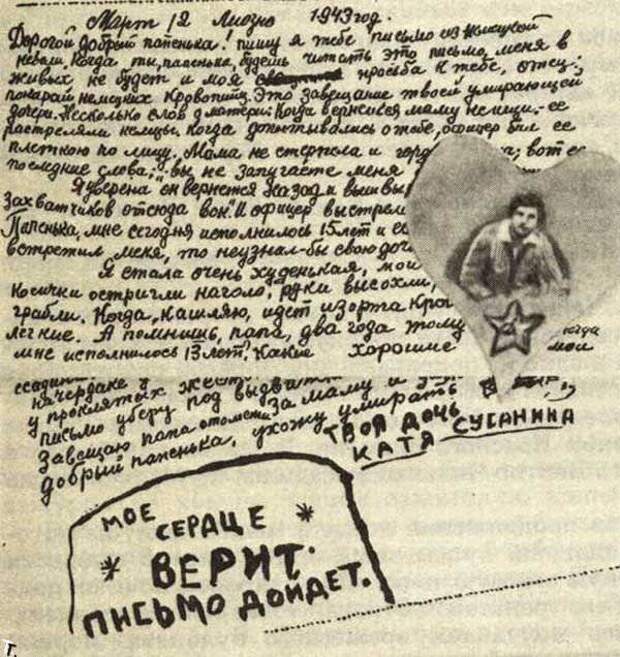 Март 12 Лиозно 1943 год.
Дорогой добрый папенька! пишу я тебе письмо из немецкой
неволи. Когда ты, папенька, будешь читать это письмо, меня в
живых не будет и моя просьба к тебе, отец:
покарай немецких кровопийц. Это завещание твоей умирающей
дочери. Несколько слов о матери. Когда вернешься маму не ищи. ее
расстреляли немцы. Когда допытывались о тебе, офицер бил ее
плеткою по лицу. Мама не стерпела и гор вот ее
последние слова: „вы не запугаете меня
Я уверена он вернется назад и вышвы
захватчиков отсюда вон." И офицер выстрел
Папенька, мне сегодня исполнилось 15 лет и ес
встретил меня, то неузнал-бы свою доч
Я стала очень худенькая, мои
Косички остригли наголо, руки высохли,
грабли. Когда кашляю, идет изо рта кро
легкие. А помнишь, папа, два года тому когда
мне исполнилось 13 лет? Какие хорошие мои
на чердаке
у проклятых жест
письмо уберу под
Завещаю папа отомсти за маму и
добрый папенька, ухожу умирать
ТВОЯ ДОЧЬ
КАТЯ СУСАНИНА
МОЕ
СЕРДЦЕ
ВЕРИТ.
ПИСЬМО ДОЙДЕТ.
г.